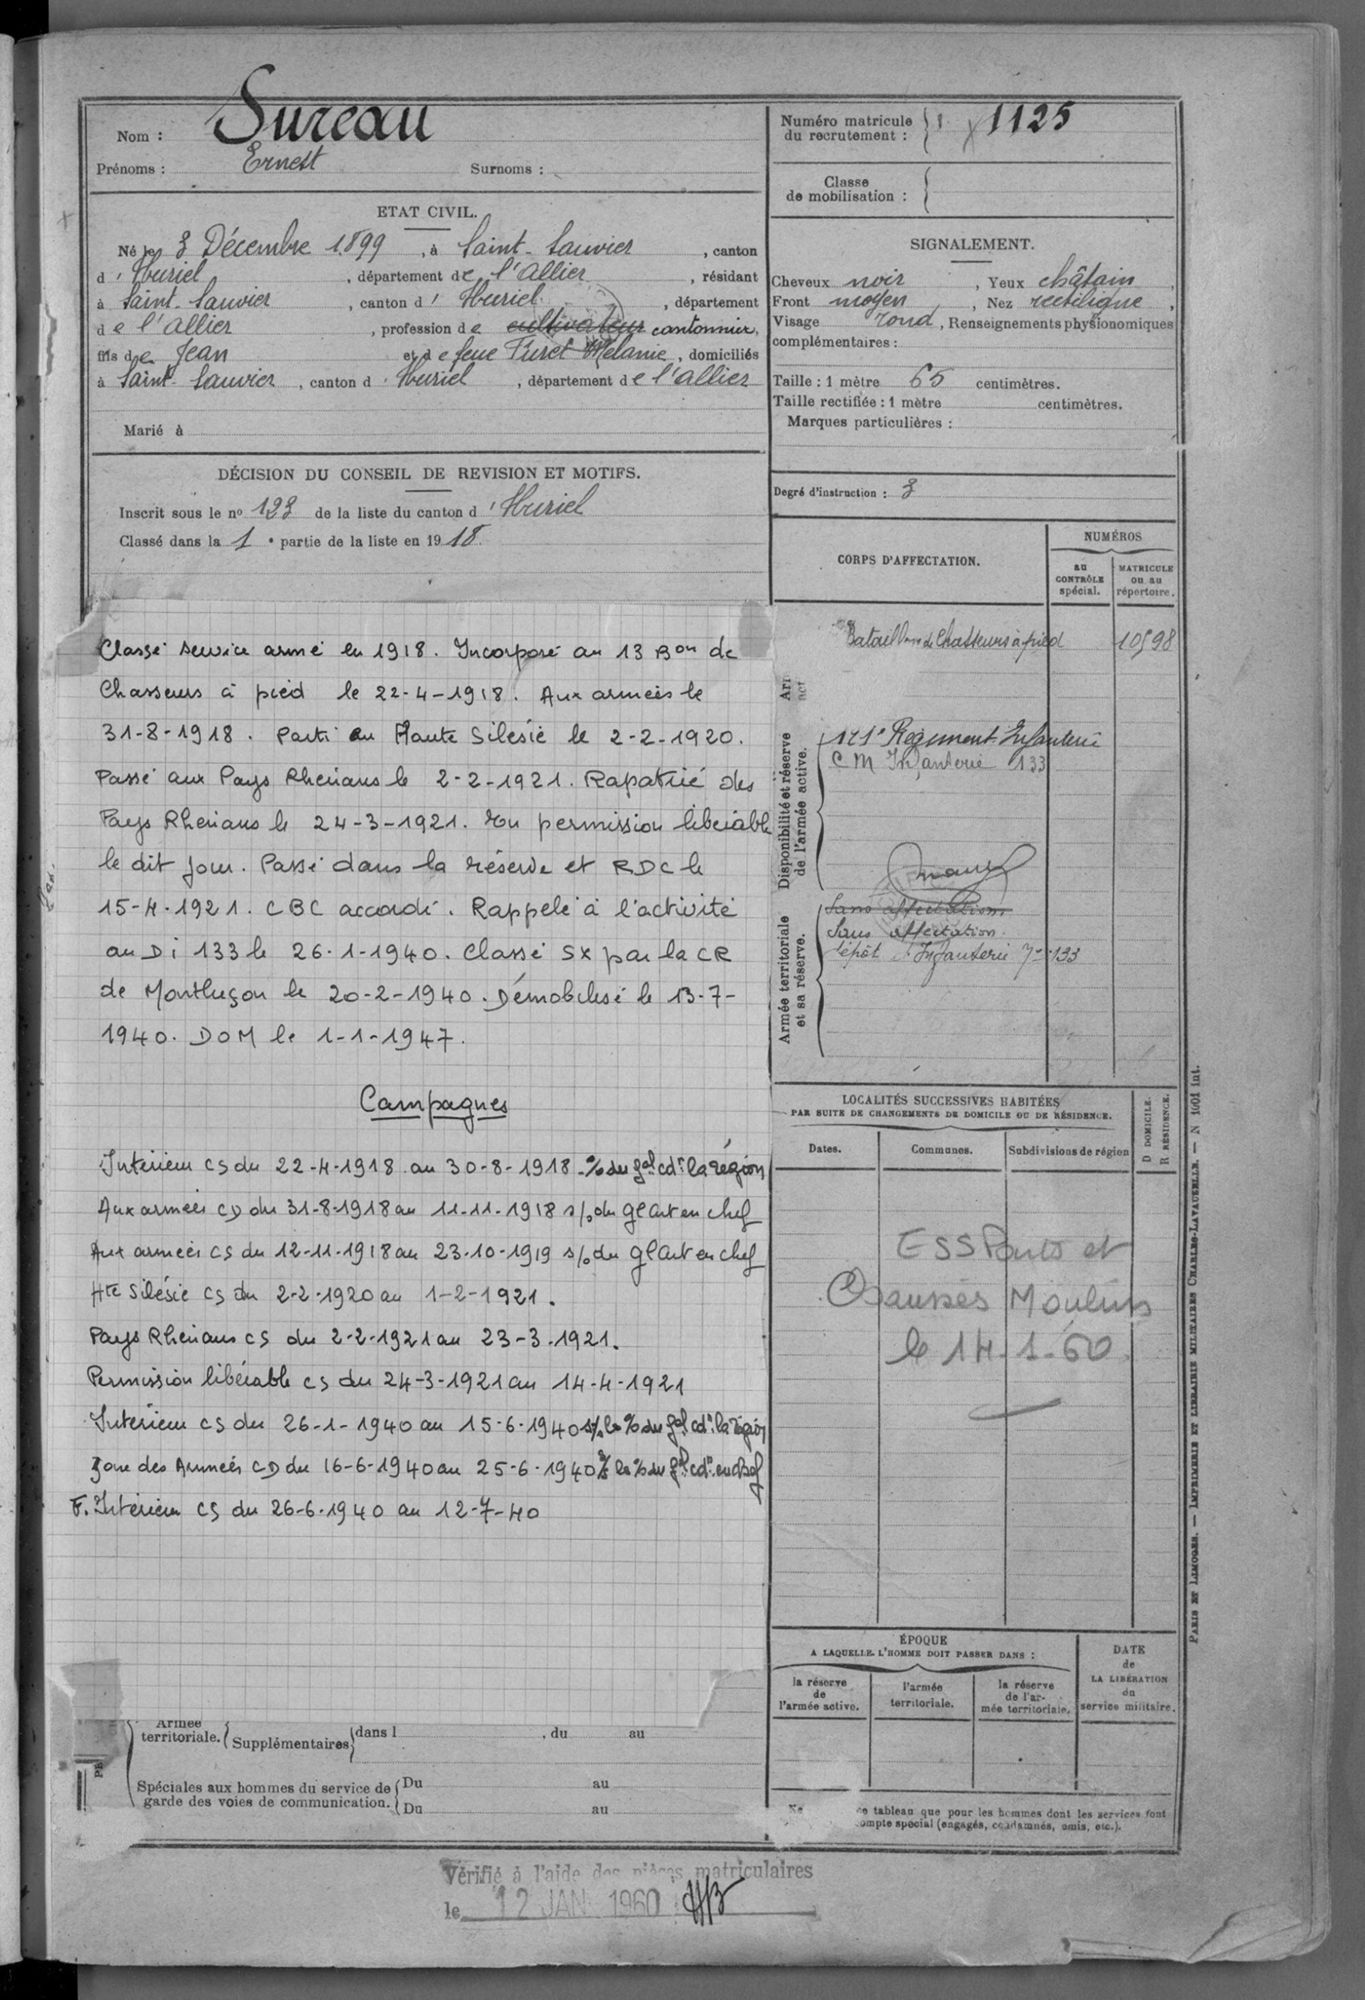 Nom : Sureau
Prénoms : Ernest Surnoms :
ETAT CIVIL.
Né le 3 Décembre 1899, à Saint-Sauvier, canton
d'Huriel, département de l'Allier, résidant
à Saint-Sauvier, canton d'Huriel, département
de l'Allier, profession de cultivateur cantonnier,
fils de Jean et de feue Furet Mélanie, domiciliés
à Saint-Sauvier, canton d'Huriel, département de l'Allier
Marié à
DÉCISION DU CONSEIL DE REVISION ET MOTIFS.
Inscrit sous le nº 123 de la liste du canton d'Huriel
Classé dans la 1e partie de la liste en 1918.
Classé service armé en 1918. Incorporé au 13 Bon de
Chasseurs à pied le 22-4-1918. Aux armées le
31-8-1918. Parti en Haute Silésie le 2-2-1920.
Passé aux Pays Rhénans le 2-2-1921. Rapatrié des
Pays Rhénans le 24-3-1921. En permission libérable
le dit jour. Passé dans la réserve et RDC le
15-4-1921. CBC accordé. Rappelé à l'activité
au D i 133 le 26-1-1940. Classé SX par la CR
de Montluçon le 20-2-1940. Démobilisé le 13-7-
1940. DOM le 1-1-1947.
Campagnes
Intérieur CS du 22-4-1918 au 30-8-1918 % du gal cdt la région
Aux armées CD du 31-8-1918 au 11-11-1918 s/o du Gl Cdt en chef
Aux armées CS du 12-11-1918 au 23-10-1919 s/o du Gl Cdt en chef
Hte Silésie CS du 2-2-1920 au 1-2-1921.
Pays Rhénans CS du 2-2-1921 au 23-3-1921.
Permission libérable CS du 24-3-1921 au 14-4-1921
Intérieur CS du 26-1-1940 au 15-6-1940 la % du gal cdt la région
Zone des Armées CD du 16-6-1940 au 25-6-1940 la % du gal cdt en chef
F. Intérieur CS du 26-6-1940 au 12-7-40
Armée
territoriale. Supplémentaires dans l , du au
Spéciales aux hommes du service de
garde des voies de communication.
Du au
Du au
Vérifié à l'aide des pièces matriculaires
le 12 JAN 1960
Numéro matricule
du recrutement : 1125
Classe
de mobilisation :
SIGNALEMENT.
Cheveux noir, Yeux châtain,
Front moyen, Nez rectiligne,
Visage rond, Renseignements physionomiques
complémentaires :
Taille : 1 mètre 65 centimètres.
Taille rectifiée : 1 mètre centimètres.
Marques particulières :
Degré d'instruction : 3
CORPS D'AFFECTATION.
NUMÉROS
au
CONTRÔLE
spécial.
MATRICULE
ou au
répertoire.
Bataillon de Chasseurs à pied 10598
Disponibilité et réserve
de l'armée active.
121e Régiment Infanterie
CM Infanterie 133
Armée territoriale
et sa réserve.
Sans affectation
Sans affectation.
Dépôt d'Infanterie 133
LOCALITÉS SUCCESSIVES HABITÉES
PAR SUITE DE CHANGEMENTS DE DOMICILE OU DE RÉSIDENCE.
Dates. Communes. Subdivisions de région
D DOMICILE.
R RÉSIDENCE.
ESS Ponts et
Chaussées Moulins
le 14-1-60.
ÉPOQUE
A LAQUELLE L'HOMME DOIT PASSER DANS :
la réserve
de
l'armée active.
l'armée
territoriale.
la réserve
de l'ar-
mée territoriale.
DATE
de
LA LIBÉRATION
du
service militaire.
Ne
ce tableau que pour les hommes dont les services font
compte spécial (engagés, condamnés, omis, etc.).
PARIS ET LIMOGES. — IMPRIMERIE ET LIBRAIRIE MILITAIRES CHARLES-LAVAUZELLE. — N 1001 int.